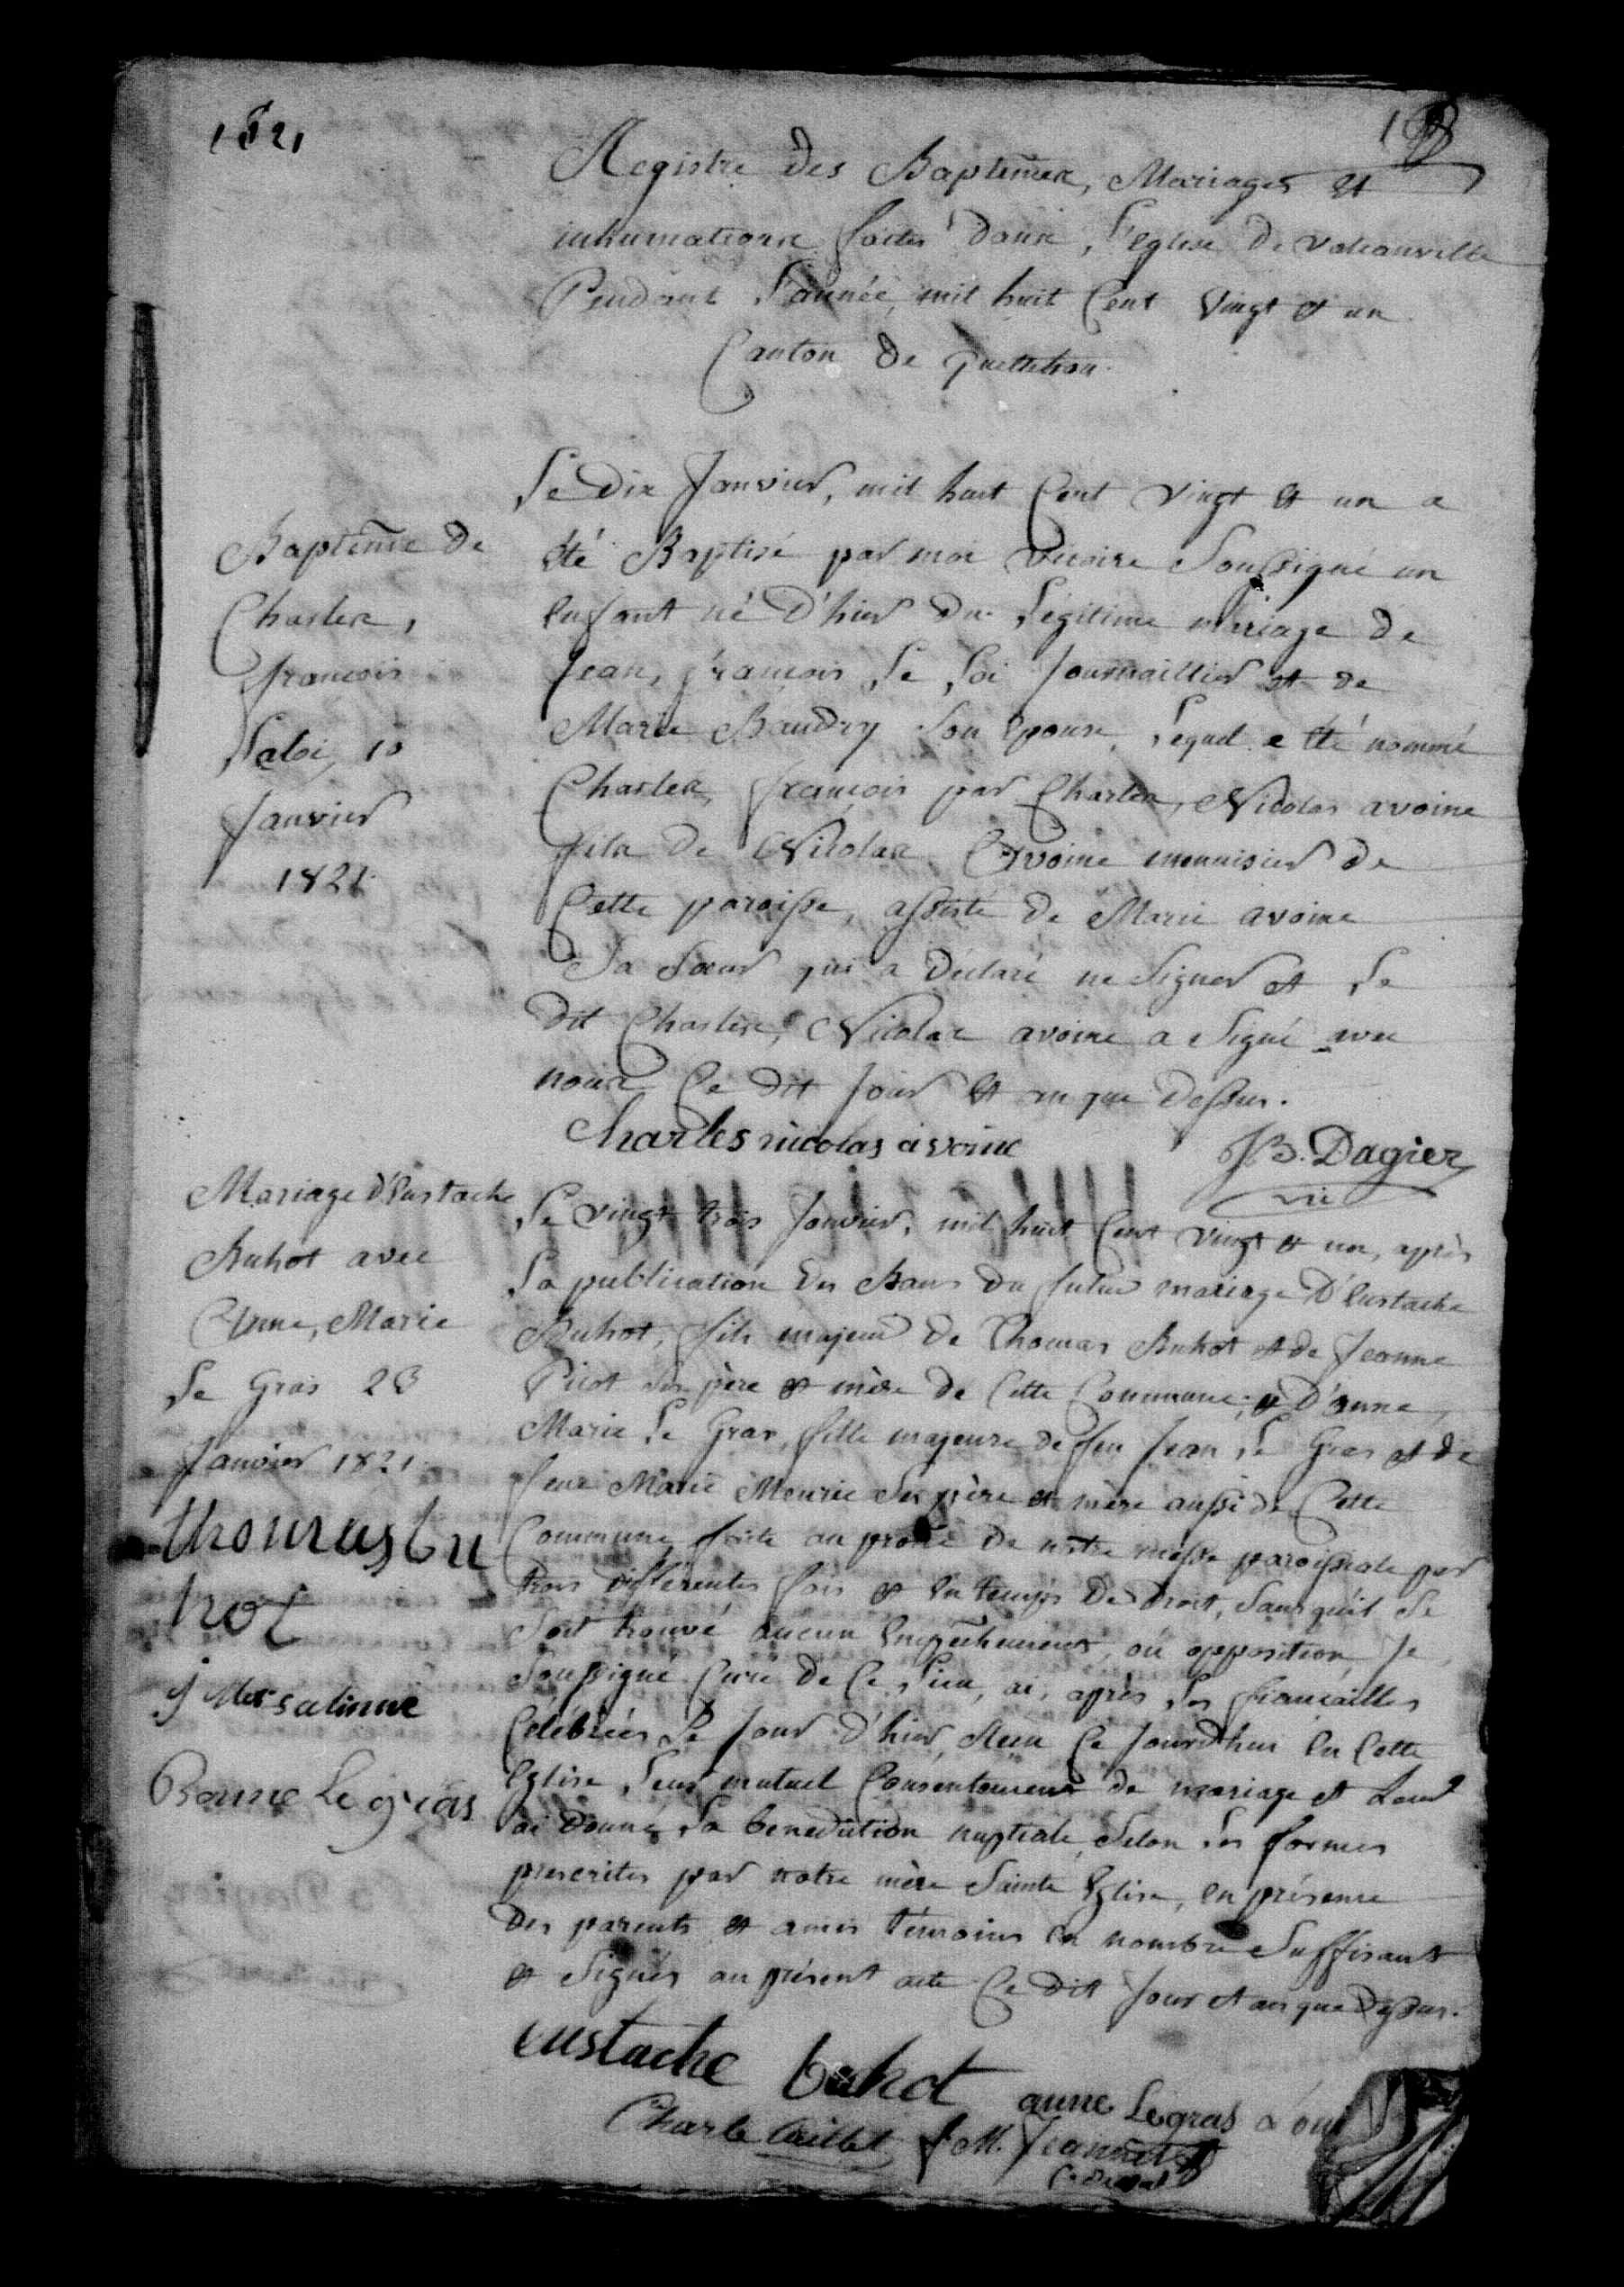 1821
Registre des Baptêmes, Mariages et
inhumations faites dans l'eglise de valcanville
Pendant l'année mil huit Cent Vingt et un
Canton de quettehou.
Baptême de
Charles,
françois
Leloi, 10
Janvier
1821
Le Dix Janvier, mil huit Cent vingt et un a
été Baptisé par moi vicaire Soussigné un
Enfant né D'hier du Légitime mariage de
Jean, françois Le Loi Journaillier et de
Marie Baudry Son Epouse, Lequel a été nommé
Charles, françois par Charles, Nicolas avoine
fils de Nicolas Avoine menuisier de
Cette paroisse, assisté de Marie avoine
Sa Sœur qui a Déclaré ne Signer et Le
dit Charles, Nicolas avoine a Signé avec
nous Ce dit Jour et an que Dessus.
Charles nicolas avoine
JB. Dagier
vic
Mariage d'Eustache
Buhot avec
Anne, Marie
Le Gras 23
Janvier 1821
thomas bu
hot
Bonne Le gras
Le vingt trois Janvier, mil huit Cent vingt et un, après
La publication des Bans du futur mariage D'Eustache
Buhot, fils majeur de Thomas Buhot et de Jeanne
Picot Ses père et mère de Cette Commune; et D'anne,
Marie Le Gras, fille majeure de feu Jean Le Gras et de
feue Marie Meurie Ses père et mère aussi de Cette
Commune faite au prône de notre messe paroissiale par
trois différentes fois et En temps De droit, Sans qu'il Se
Soit trouvé aucun Empêchement, ou opposition, Je
Soussigné Curé de Ce Lieu, ai, après Les fiançailles
Célébrées Le Jour D'hier, Recu Ce Jourd'hui En Cette
Eglise Leur mutuel Consentement de mariage et Leur
ai Donné La benediction nuptiale Selon Les formes
prescrites par notre mère Sainte Eglise, en présence
Des parents et amis témoins En nombre Suffisant
et Signés au présent acte Ce dit Jour et an que Dessus.
eustache buhot
anne Legras
Charle Caillet